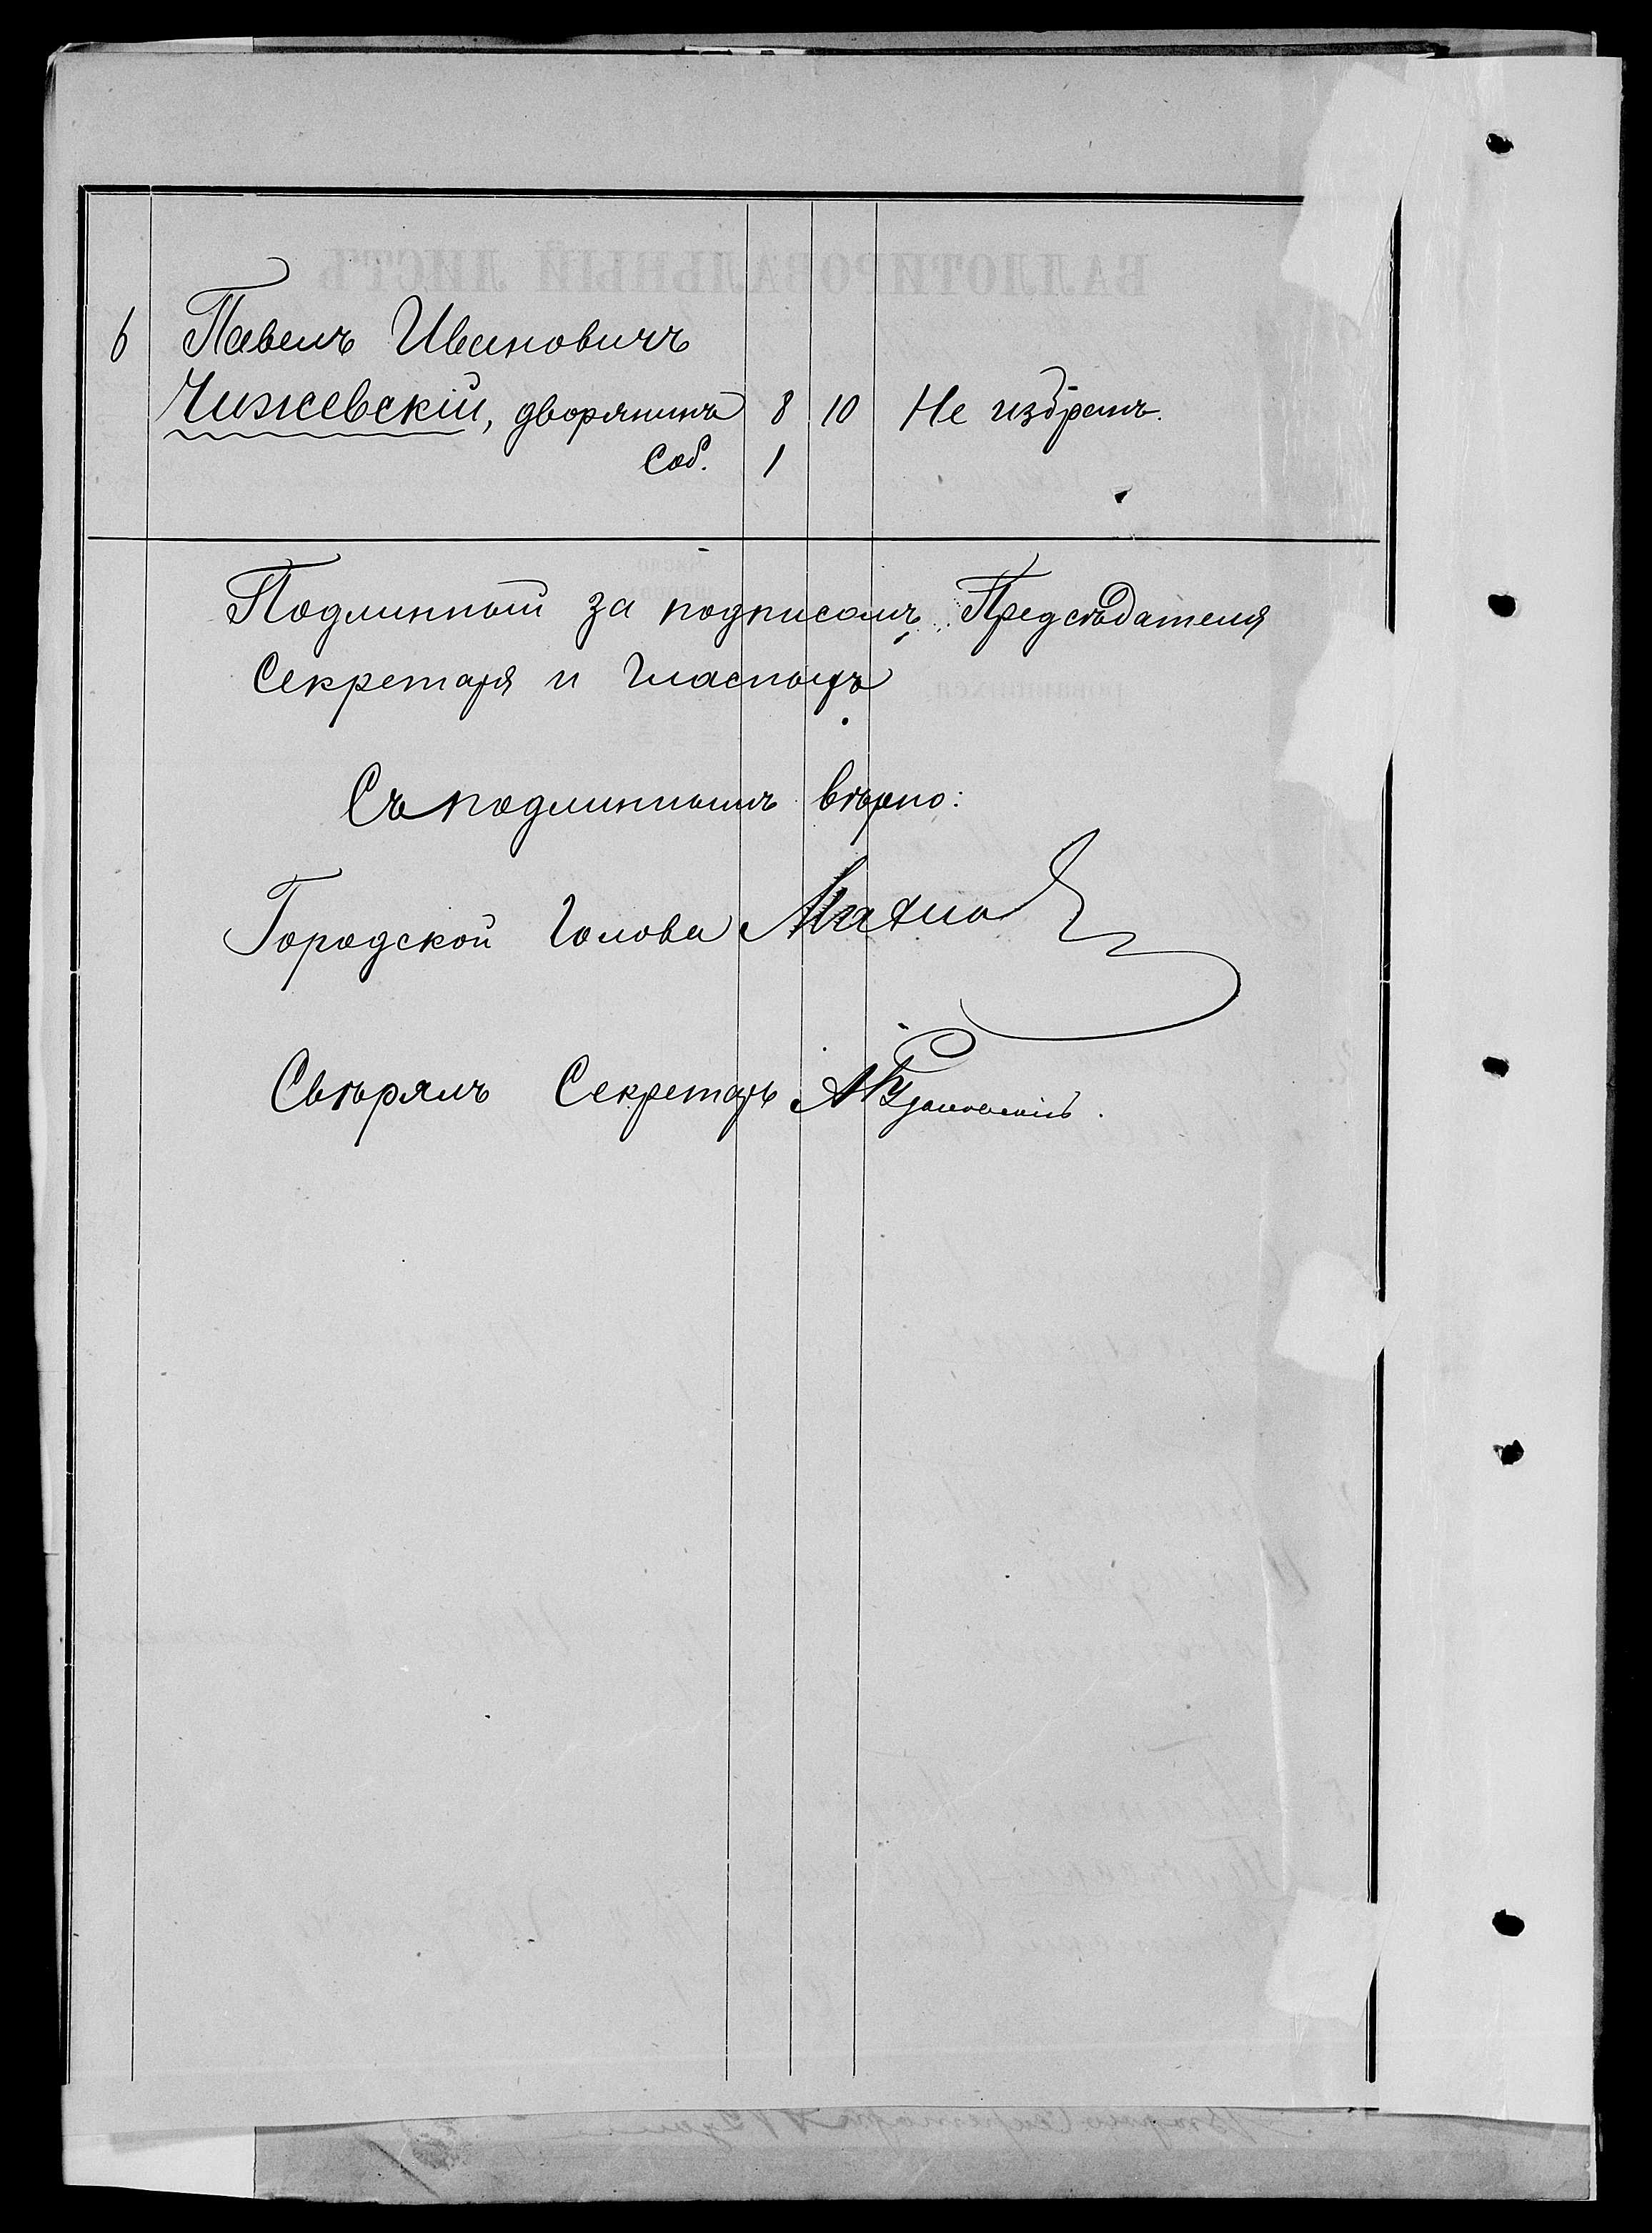 6 Павелъ Ивановичъ
Чижевскій, дворянинъ 8 10 Не избранъ.
Соб. 1
Подлинный за подписомъ Предсѣдателя
Секретаря и Гласныхъ
Съ подлиннымъ вѣрно:
Городской Голова
Свѣрялъ Секретарь